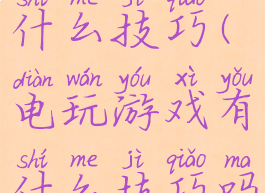 shí me jì qiǎo
什么技巧(
diàn wán yóu xì yǒu
电玩游戏有
shí me jì qiǎo ma
什么技巧吗